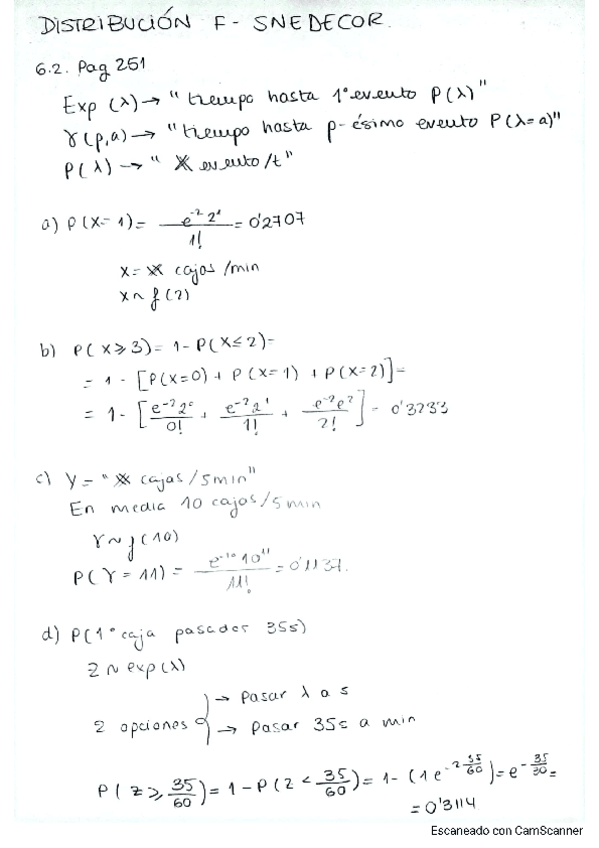 DISTRIBUCIÓN F - SNEDECOR.
6.2. Pag 251
Exp (λ) → "tiempo hasta 1° evento P(λ)"
γ(p,a) → "tiempo hasta p-ésimo evento P(λ=a)"
P(λ) → " X evento/t"
a) P(X=1) = e^-2 2^1 / 1! = 0'2707
X = X cajas/min
X ~ f(2)
b) P(X ≥ 3) = 1 - P(X ≤ 2) =
= 1 - [P(X=0) + P(X=1) + P(X=2)] =
= 1 - [e^-2 2^0 / 0! + e^-2 2^1 / 1! + e^-2 e^2 / 2!] = 0'3233
c) Y = "X cajas/5min"
En media 10 cajas/5 min
Y ~ f(10)
P(Y = 11) = e^-10 10^11 / 11! = 0'1137.
d) P(1° caja pasades 35s)
Z ~ exp(λ)
2 opciones { → pasar λ a s
→ pasar 35s a min
P(Z ≥ 35/60) = 1 - P(Z < 35/60) = 1 - (1 e^-2 35/60) = e^-35/30 =
= 0'3114
Escaneado con CamScanner